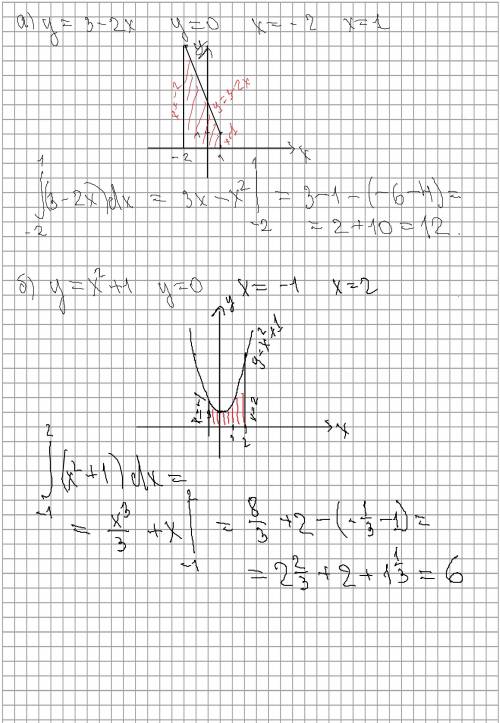 а) y = 3-2x   y=0   x=-2   x=1
y
x=-2
y=3-2x
x=1
1
-2   1   x
∫₋₂¹ (3-2x)dx = 3x-x² |₋₂¹ = 3-1-(-6-4)=
= 2+10=12.
б) y=x²+1   y=0   x=-1   x=2
y
y=x²+1
x=-1
x=2
1   2   x
∫₋₁² (x²+1)dx =
= x³/3 + x |₋₁² = 8/3 +2-(-1/3-1)=
= 2 2/3 + 2 + 1 1/3 = 6